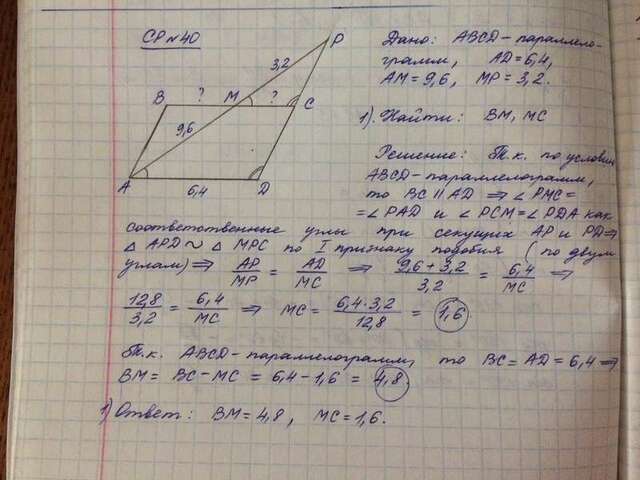 СР №40
P
3,2
B ? M ? C
9,6
A 6,4 D
Дано: ABCD – параллело-
грамм, AD = 6,4,
AM = 9,6, MP = 3,2.
1). Найти: BM, MC
Решение: Т.к. по условию
ABCD – параллелограмм,
то BC || AD ⇒ ∠PMC =
= ∠PAD и ∠PCM = ∠PDA как
соответственные углы при секущих AP и PD ⇒
△ APD ~ △ MPC по I признаку подобия (по двум
углам) ⇒ AP/MP = AD/MC ⇒ 9,6 + 3,2/3,2 = 6,4/MC ⇒
12,8/3,2 = 6,4/MC ⇒ MC = 6,4 · 3,2/12,8 = 1,6
Т.к. ABCD – параллелограмм, то BC = AD = 6,4 ⇒
BM = BC – MC = 6,4 – 1,6 = 4,8.
1) Ответ: BM = 4,8, MC = 1,6.